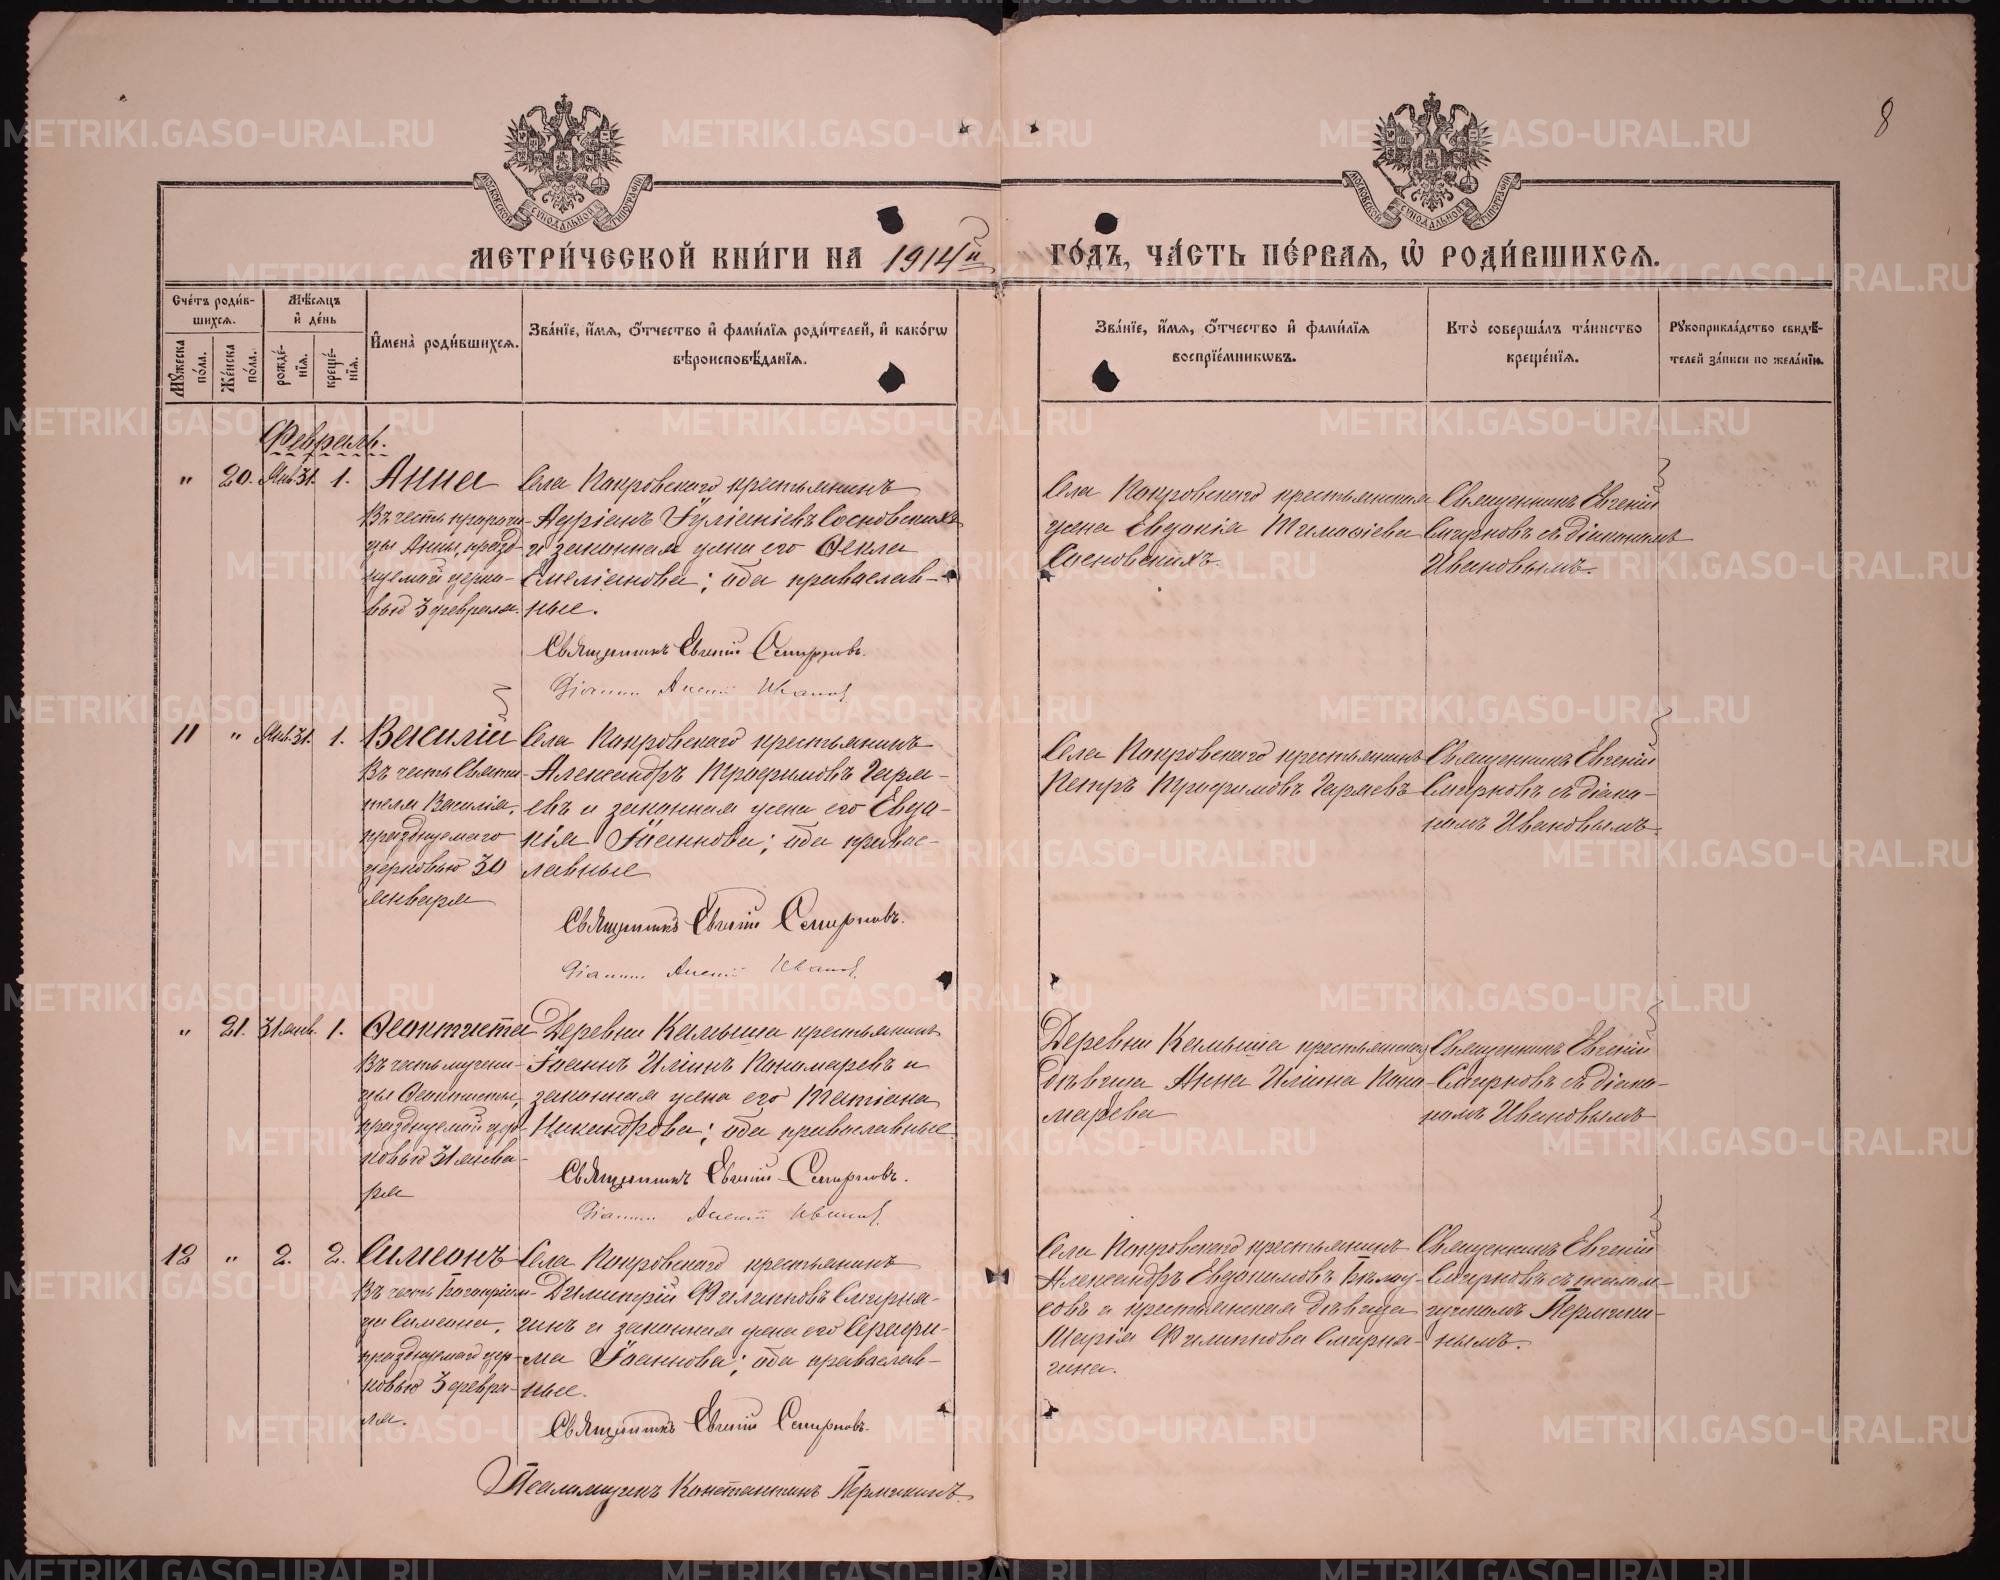 8
МОСКОВСКОЙ СУНОДАЛЬНОЙ ТИПОГРАФІИ
МОСКОВСКОЙ СУНОДАЛЬНОЙ ТИПОГРАФІИ
МЕТРИ́ЧЕСКОЙ КНИ́ГИ НА 1914й ГО́ДЪ, ЧА́СТЬ ПЕ́РВАЯ, Ѡ҆ РОДИ́ВШИХСЯ.
Сче́тъ роди́в-
шихся.
Мѣ́сяцъ
и҆ де́нь
Мꙋ́жеска по́ла.
Же́нска по́ла.
рожде́-
нїя.
креще́-
нїя.
И҆мена̀ роди́вшихся.
Зва́нїе, и҆́мя, ѻ҆́тчество и҆ фами́лїя роди́телей, и҆ како́гѡ
вѣроисповѣ́данїя.
Зва́нїе, и҆́мя, ѻ҆́тчество и҆ фами́лїя
воспрїе́мникѡвъ.
Кто̀ соверша́лъ та́инство
креще́нїя.
Рꙋкоприкла́дство свидѣ́-
телей за́писи по жела́нїю.
Февраль.
" 20. Янв. 31. 1. Анна
Въ честь пророчи-
цы Анны, празд-
нуемой церко-
вью 3 февраля.
Села Покровскаго крестьянинъ
Адріанъ Іуліаніевъ Сосновскихъ
и законная жена его Ѳекла
Емеліанова; оба православ-
ные.
Священникъ Евгеній Смирновъ.
Діаконъ Ивановъ
Села Покровскаго крестьянская
жена Евдокія Тимоѳіева
Сосновскихъ.
Священникъ Евгеній
Смирновъ съ діакономъ
Ивановымъ.
11 " Янв. 31. 1. Василій
Въ честь Святи-
теля Василія,
празднуемаго
церковью 30
января
Села Покровскаго крестьянинъ
Александръ Трофимовъ Гаря-
евъ и законная жена его Евдо-
кія Іоаннова; оба право-
славные
Священникъ Евгеній Смирновъ.
Діаконъ Ивановъ
Села Покровскаго крестьянинъ
Петръ Трофимовъ Гаряевъ
Священникъ Евгеній
Смирновъ съ діако-
номъ Ивановымъ.
" 21. 31 янв. 1. Ѳеоктиста
Въ честь мучени-
цы Ѳеоктисты,
празднуемой цер-
ковью 31 янва-
ря
Деревни Камыша крестьянинъ
Іоаннъ Иліинъ Пономаревъ и
законная жена его Татіана
Никандрова; оба православные.
Священникъ Евгеній Смирновъ.
Діаконъ Ивановъ
Деревни Камыша крестьянская
дѣвица Анна Иліина Поно-
марева
Священникъ Евгеній
Смирновъ съ діако-
номъ Ивановымъ
12 " 2. 2. Симеонъ
Въ честь Богопріим-
ца Симеона,
празднуемаго цер-
ковью 3 февра-
ля.
Села Покровскаго крестьянинъ
Димитрій Филипповъ Смирня-
гинъ и законная жена его Серафи-
ма Іоаннова; оба православ-
ные.
Священникъ Евгеній Смирновъ.
Псаломщикъ Константинъ Пермикинъ.
Села Покровскаго крестьянинъ
Александръ Евдокимовъ Бѣлоу-
совъ и крестьянская дѣвица
Марія Филиппова Смирня-
гина.
Священникъ Евгеній
Смирновъ съ псалом-
щикомъ Пермики-
нымъ.